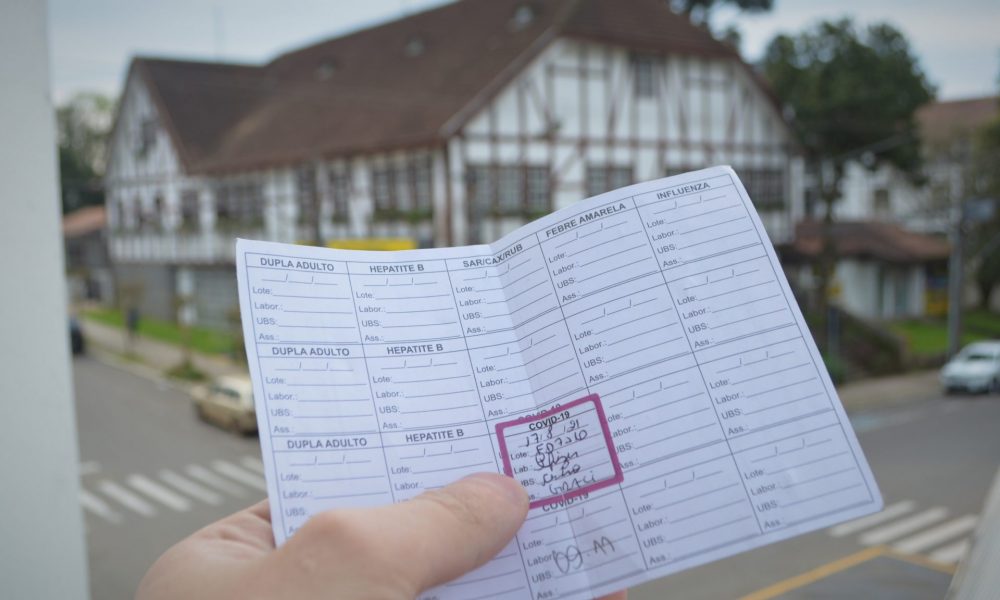 DUPLA ADULTO
/ /
Lote:
Labor.:
UBS:
Ass.:
HEPATITE B
/ /
Lote:
Labor.:
UBS:
Ass.:
SAR/CAX/RUB
/ /
Lote:
Labor.:
UBS:
Ass.:
FEBRE AMARELA
/ /
Lote:
Labor.:
UBS:
Ass.:
INFLUENZA
/ /
Lote:
Labor.:
UBS:
Ass.:
DUPLA ADULTO
/ /
Lote:
Labor.:
UBS:
Ass.:
HEPATITE B
/ /
Lote:
Labor.:
UBS:
Ass.:
/ /
Lote:
Labor.:
UBS:
Ass.:
/ /
Lote:
Labor.:
UBS:
Ass.:
/ /
Lote:
Labor.:
UBS:
Ass.:
DUPLA ADULTO
/ /
Lote:
Labor.:
UBS:
Ass.:
HEPATITE B
/ /
Lote:
Labor.:
COVID-19
17/8/21
Lote:
Lab: Pfizer
UBS: Centro
GRACI
/ /
Lote:
Labor.:
UBS:
Ass.:
/ /
Lote:
Labor.:
UBS:
Ass.:
COVID-19
Lote:
Labor.:
UBS: 09.11
Ass.:
/ /
Lote:
Labor.:
UBS:
Ass.:
/ /
Lote:
Labor.:
UBS:
Ass.: